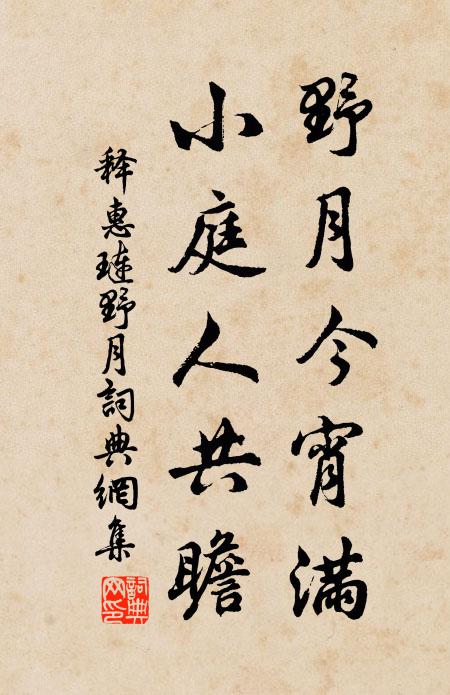 野月今宵满
小庭人共瞻
释惠琏野月詞典網集
詞典网印